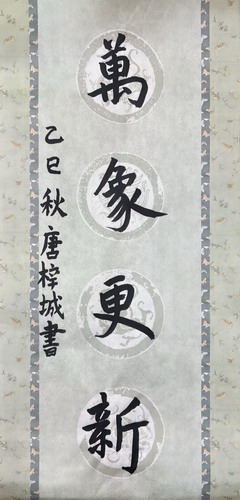 萬象更新
乙巳秋唐梓城書